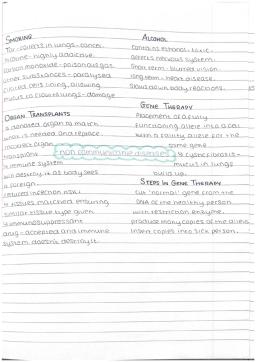 SMOKING
Tar - collects in lungs - cancer
nicotine - highly addictive
carbon monoxide - poisonous gas
other substances - paralysed
ciliated cells lining, allowing
mucus to clog lungs - damage
ORGAN TRANSPLANTS
a donated organ to match
what is needed and replace
incorrect organ
transplant
↳ immune system
will destroy it as body sees
a foreign.
reduce infection risk:
↳ tissues matched ensuring
similar tissue type given
↳ immunosuppressant
drug - accepted and immune
system doesn't destroy it.
non communicable diseases
ALCOHOL
contains ethanol - toxic -
affects nervous system.
short term - blurred vision
long term - heart disease.
slows down body reactions.
GENE THERAPY
Placement of a fully
functioning allele into a cell
with a faulty allele for the
same gene
↳ cystic fibrosis -
mucus in lungs
build up.
STEPS IN GENE THERAPY
cut 'normal' gene from the
DNA of the healthy person
with restriction enzyme.
produce many copies of the allele
insert copies into sick person.